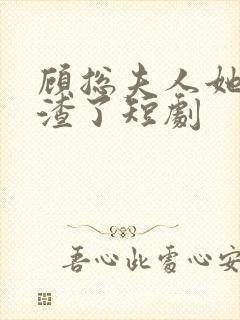 顾总夫人她
渣了短劇
吾心此處心安